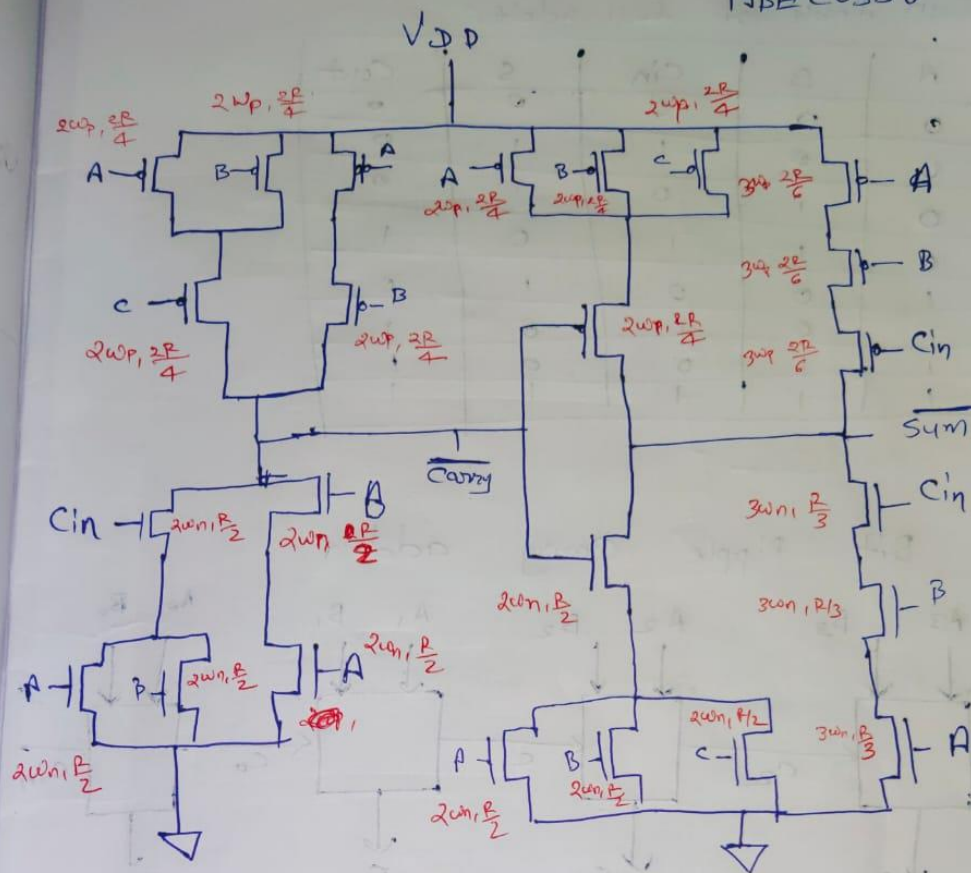 VDD
2wp, 2R/4
2wp, 2R/4
2wp, 2R/4
A
B
A
A
B
C
A
2wp, 2R/4
2wp, 2R/4
3wp 2R/6
3wp 2R/6
B
C
B
2wp, 2R/4
2wp, 2R/4
2wp, 2R/4
3wp 2R/6
Cin
Carry
Sum
Cin
2wn, R/2
B
2wn R/2
3wn, R/3
Cin
2wn, R/2
3wn, R/3
B
A
B
2wn, R/2
A
2wn, R/2
2wn, R/2
A
B
2wn, R/2
C
2wn, R/2
2wn, R/2
3wn, R/3
A